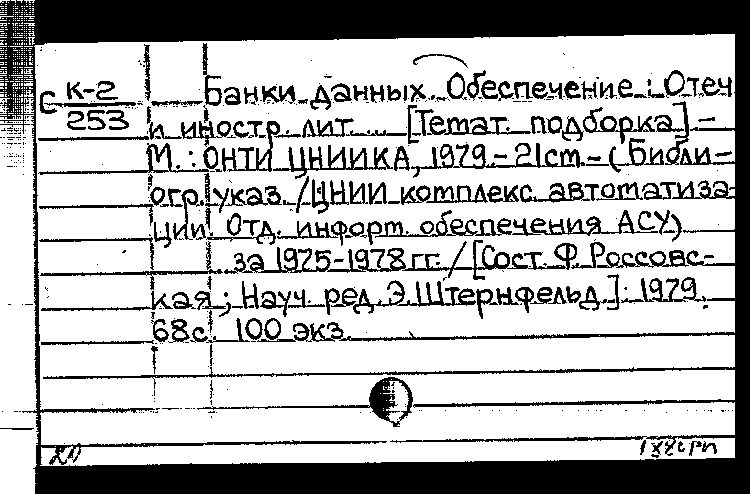 С К-2
253
Банки данных. Обеспечение : Отеч
и иностр. лит. ... [Темат. подборка] –
М. : ОНТИ ЦНИИКА, 1979. – 21см – ( Библи-
огр. указ. / ЦНИИ комплекс. автоматиза-
ции. Отд. информ. обеспечения АСУ)
... за 1975-1978 гг. / [Сост. Ф. Россовс-
кая ; Науч. ред. Э. Штернфельд.] : 1979.
68 с. 100 экз.